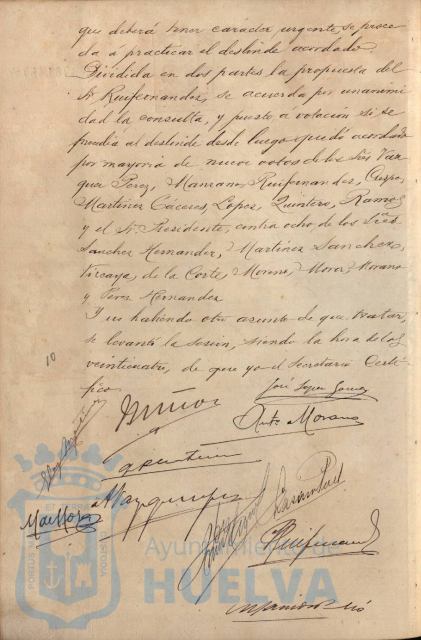 que deberá tener caracter urgente, se proce
da á practicar el deslinde acordado.
Dividida en dos partes la propuesta del
Sr. Ruifernandez, se acuerda por unanimi
dad la consulta, y puesto a votación si se
procedia al deslinde desde luego quedó acordado
por mayoria de nueve votos de los Sres Vaz
quez Perez, Manzano, Ruifernandez, Crespo,
Martinez Cáceres, Lopez, Quintero, Ramos
y el Sr. Presidente, contra ocho, de los Sres
Sanchez Hernandez, Martinez Sanchez,
Vizcaya, de la Corte, Moreno, Mora, Morano
y Perez Hernandez
Y no habiendo otro asunto de que tratar
se levantó la sesion, siendo la hora de las
veinticuatro, de que yo el Secretario Certi
fico.
10
José Gomez
Muñoz
Anto Morano
Ruifernand
Ayuntamiento de
HUELVA
PORTUS